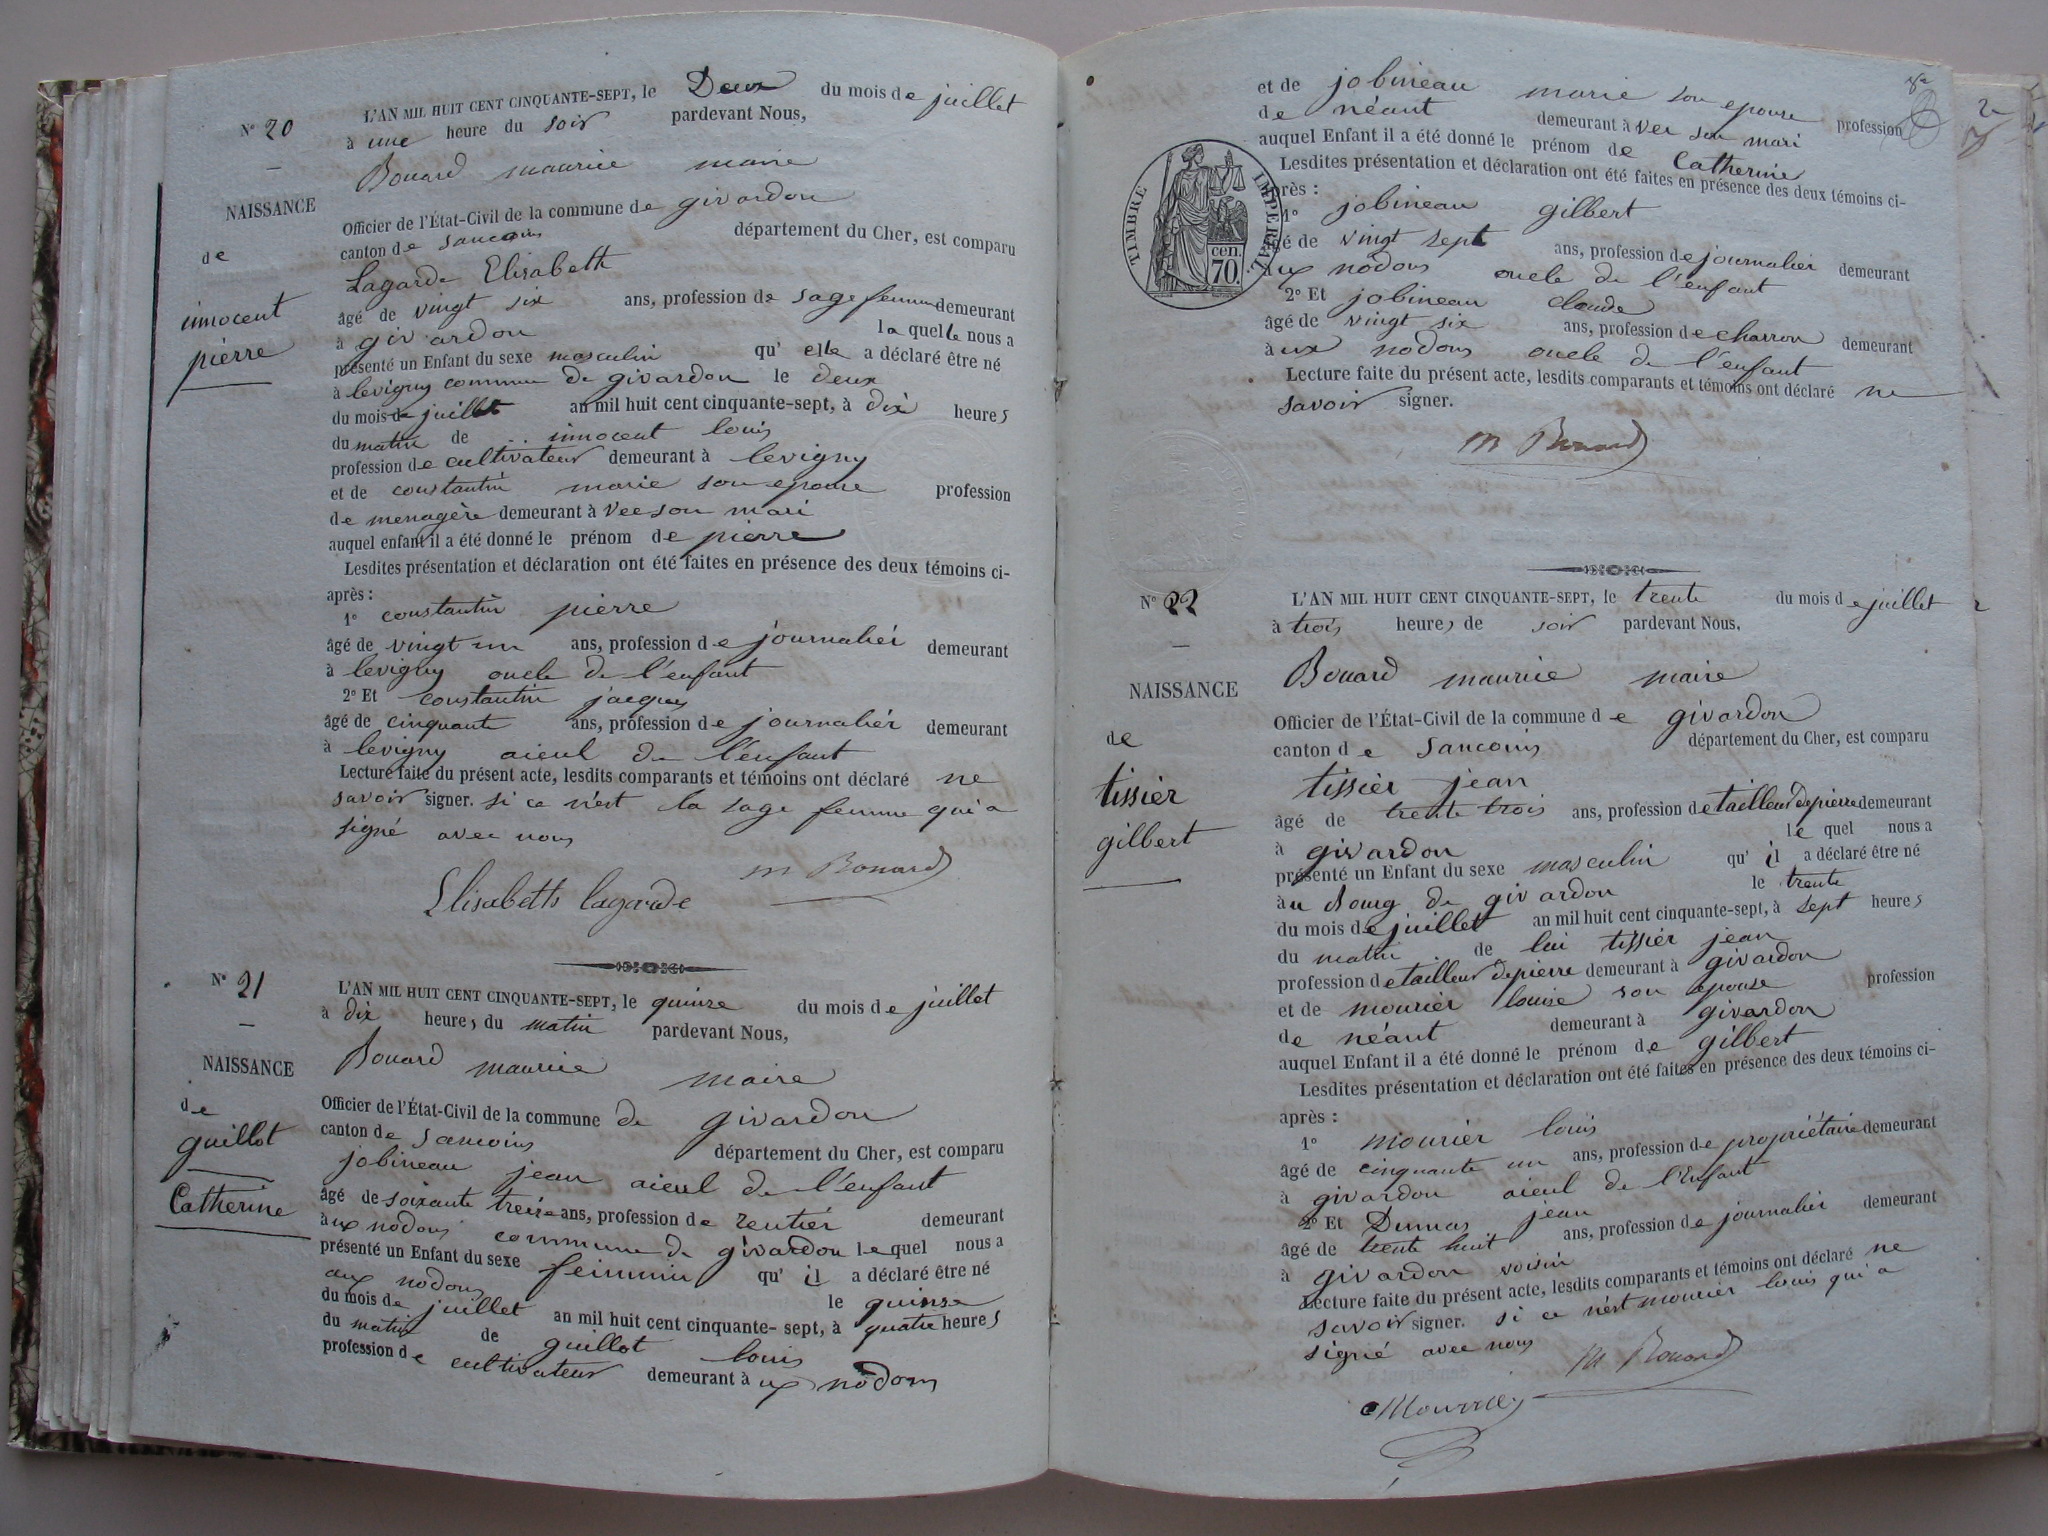 N° 20
L'AN MIL HUIT CENT CINQUANTE-SEPT, le Deux du mois de juillet
à une heure du soir pardevant Nous,
Bouard maurice maire
NAISSANCE
Officier de l'État-Civil de la commune de givardon
canton de sancoins département du Cher, est comparu
de
Lagarde Elisabeth
innocent
âgé de vingt six ans, profession de sage femme demeurant
à givardon la quelle nous a
pierre
présenté un Enfant du sexe masculin qu' elle a déclaré être né
à levigny commune de givardon le deux
du mois de juillet an mil huit cent cinquante-sept, à dix heures
du matin de innocent louis
profession de cultivateur demeurant à levigny
et de constantin marie son epouse profession
de menagère demeurant à vec son mari
auquel enfant il a été donné le prénom de pierre
Lesdites présentation et déclaration ont été faites en présence des deux témoins ci-
après :
1° constantin pierre
âgé de vingt un ans, profession de journalier demeurant
à levigny oncle de l'enfant
2° Et constantin jacques
âgé de cinquante ans, profession de journalier demeurant
à levigny aieul de l'enfant
Lecture faite du présent acte, lesdits comparants et témoins ont déclaré ne
savoir signer. si ce n'est la sage femme qui a
signé avec nous
m Bouard
Elisabeth lagarde
N° 21
L'AN MIL HUIT CENT CINQUANTE-SEPT, le quinse du mois de juillet
à dix heures du matin pardevant Nous,
Bouard maurice maire
NAISSANCE
de
Officier de l'État-Civil de la commune de givardon
canton de sancoins département du Cher, est comparu
guillot
jobineau jean aieul de l'enfant
Catherine
âgé de soixante treize ans, profession de rentier demeurant
aux nodons commune de givardon lequel nous a
présenté un Enfant du sexe feminin qu' il a déclaré être né
aux nodons le quinse
du mois de juillet an mil huit cent cinquante-sept, à quatre heures
du matin de guillot louis
profession de cultivateur demeurant à ux nodons
et de jobineau marie son epouse profession
de néant demeurant à vec son mari
auquel Enfant il a été donné le prénom de Catherine
Lesdites présentation et déclaration ont été faites en présence des deux témoins ci-
après :
TIMBRE IMPERIAL.
cen.
70.
1° jobineau gilbert
âgé de vingt sept ans, profession de journalier demeurant
aux nodons oncle de l'enfant
2° Et jobineau claude
âgé de vingt six ans, profession de charron demeurant
à ux nodons oncle de l'enfant
Lecture faite du présent acte, lesdits comparants et témoins ont déclaré ne
savoir signer.
m Bouard
N° 22
L'AN MIL HUIT CENT CINQUANTE-SEPT, le trente du mois de juillet
à trois heures de soir pardevant Nous,
Bouard maurice maire
NAISSANCE
Officier de l'État-Civil de la commune de givardon
de
canton de sancoins département du Cher, est comparu
tissier
tissier jean
âgé de trente trois ans, profession de tailleur de pierre demeurant
gilbert
à givardon le quel nous a
présenté un Enfant du sexe masculin qu' il a déclaré être né
au bourg de givardon le trente
du mois de juillet an mil huit cent cinquante-sept, à sept heures
du matin de lui tissier jean
profession de tailleur de pierre demeurant à givardon
et de mourier louise son epouse profession
de néant demeurant à givardon
auquel Enfant il a été donné le prénom de gilbert
Lesdites présentation et déclaration ont été faites en présence des deux témoins ci-
après :
1° mourier louis
âgé de cinquante un ans, profession de propriétaire demeurant
à givardon aieul de l'Enfant
2° Et Dumas jean
âgé de trente huit ans, profession de journalier demeurant
à givardon voisin
Lecture faite du présent acte, lesdits comparants et témoins ont déclaré ne
savoir signer. si ce n'est mourier louis qui a
signé avec nous
m Bouard